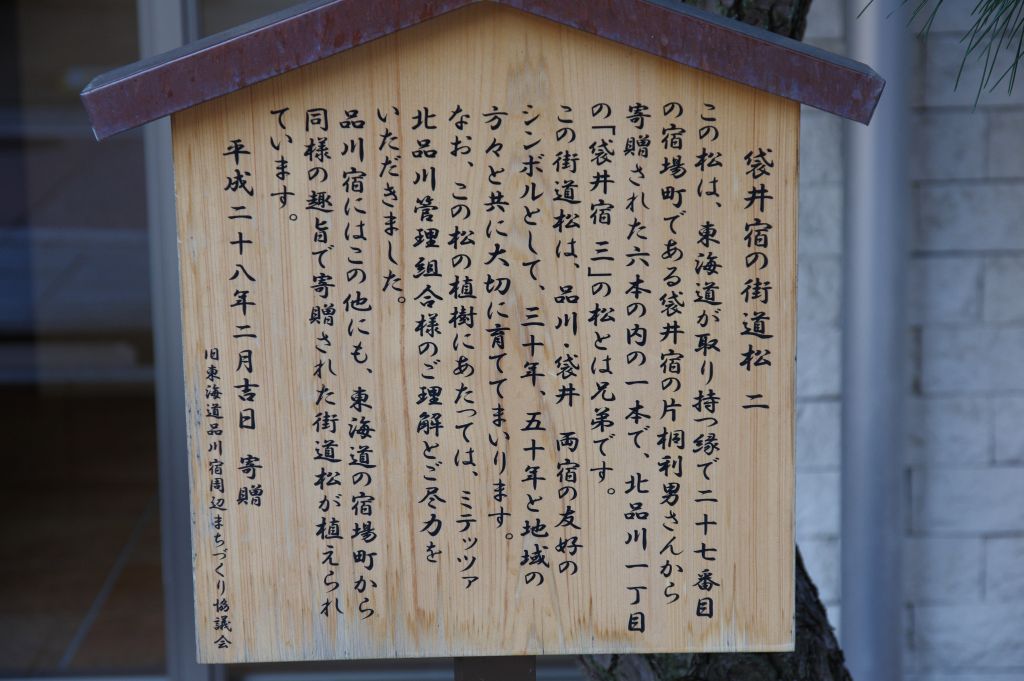 袋井宿の街道松 二
この松は、東海道が取り持つ縁で二十七番目
の宿場町である袋井宿の片桐利男さんから
寄贈された六本の内の一本で、北品川一丁目
の「袋井宿 三」の松とは兄弟です。
この街道松は、品川・袋井 両宿の友好の
シンボルとして、三十年、五十年と地域の
方々と共に大切に育ててまいります。
なお、この松の植樹にあたっては、ミテッツァ
北品川管理組合様のご理解とご尽力を
いただきました。
品川宿にはこの他にも、東海道の宿場町から
同様の趣旨で寄贈された街道松が植えられ
ています。
平成二十八年二月吉日 寄贈
旧東海道品川宿周辺まちづくり協議会